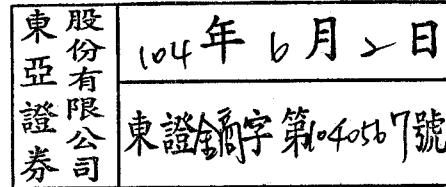 東亞證券
股份有限公司
104年6月2日
東證金商字第1040567號